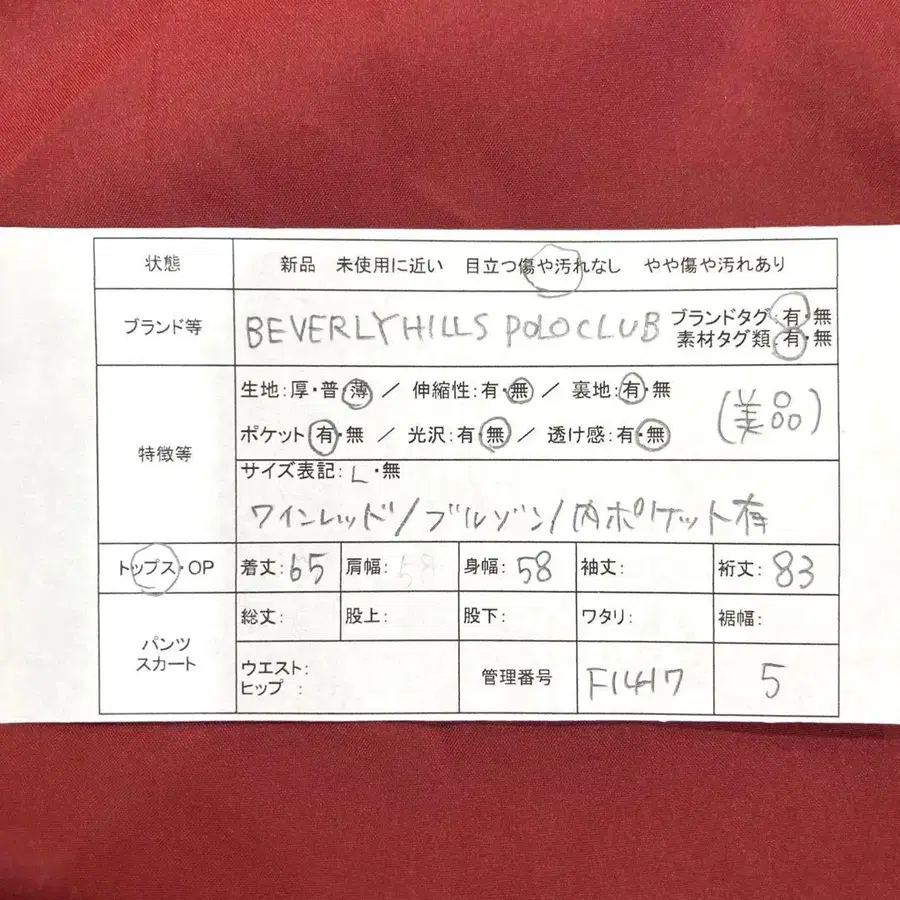 状態 新品 未使用に近い 目立つ傷や汚れなし やや傷や汚れあり
ブランド等 BEVERLY HILLS POLO CLUB ブランドタグ:有・無
素材タグ類:有・無
特徴等
生地:厚・普・薄 / 伸縮性:有・無 / 裏地:有・無
ポケット:有・無 / 光沢:有・無 / 透け感:有・無
(美品)
サイズ表記:L・無
ワインレッド/ブルゾン/内ポケット有
トップス・OP 着丈:65 肩幅: 身幅:58 袖丈: 裄丈:83
パンツ
スカート
総丈: 股上: 股下: ワタリ: 裾幅:
ウエスト:
ヒップ :
管理番号 F1417 5